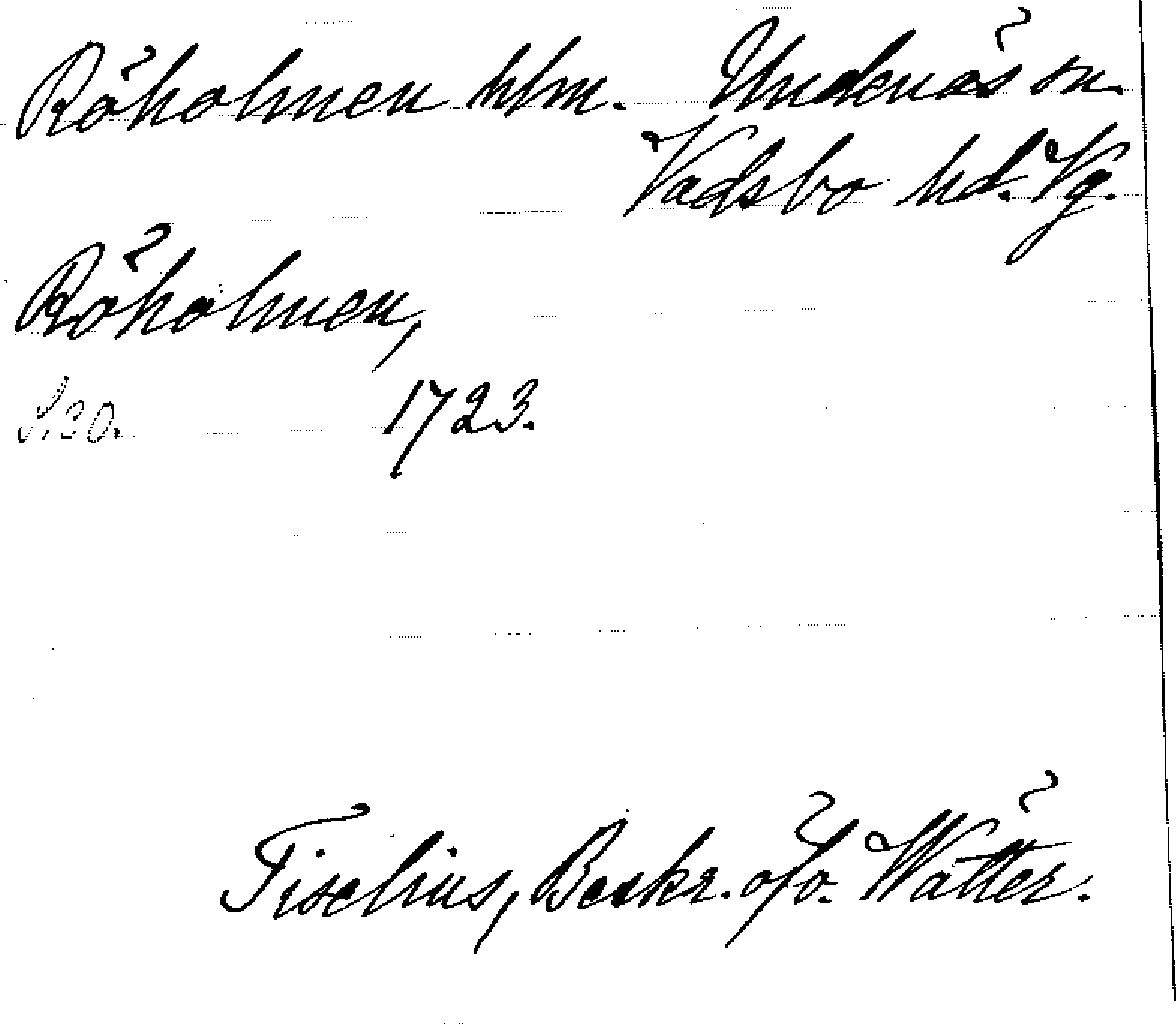 Röholmen hlm. Undenäs sn.
Vadsbo hd. Vg.
Röholmen,
S.20. 1723.
Tiselius, Beskr. öfv. Wätter.